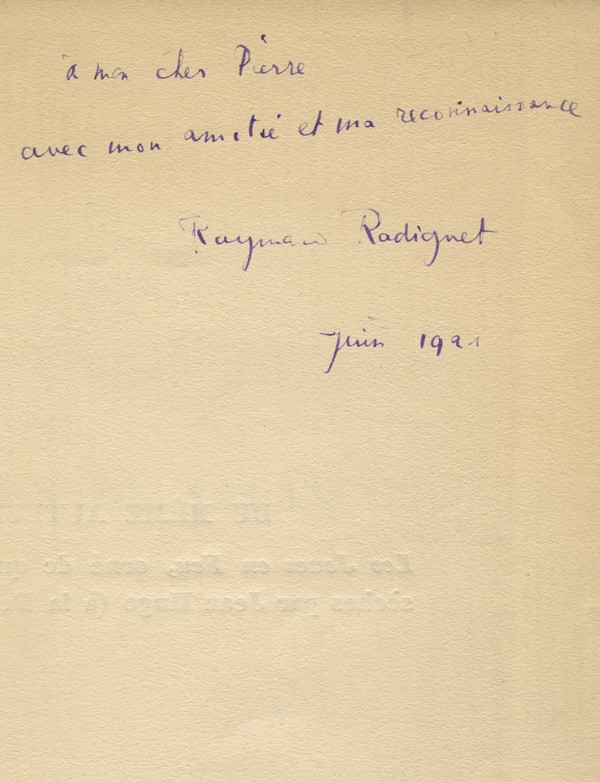 à mon cher Pierre
avec mon amitié et ma reconnaissance
Raymond Radiguet
Juin 1921
DU MÊME AUTEUR
Les Joues en Feu, orné de
sèches par Jean Hugo (à la